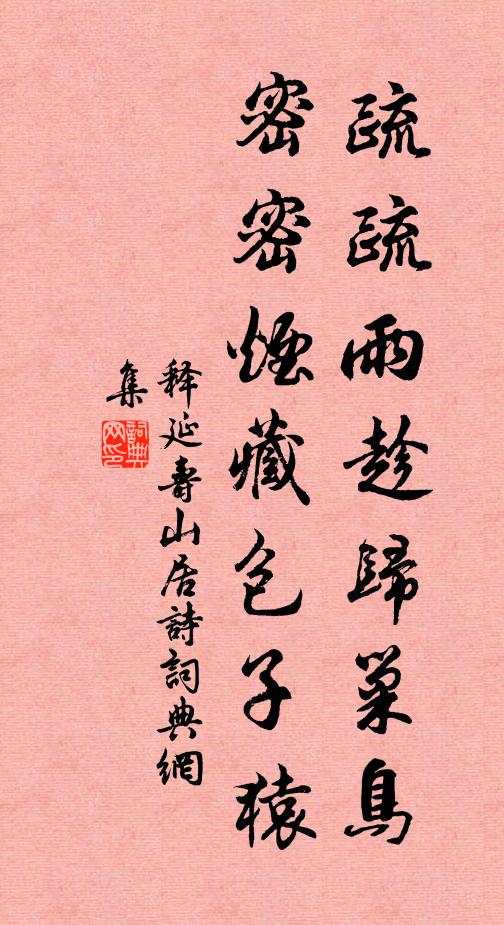 疏疏雨趁歸巢鳥
密密煙藏包子猿
释延壽山居詩詞典網
集
詞典
网印